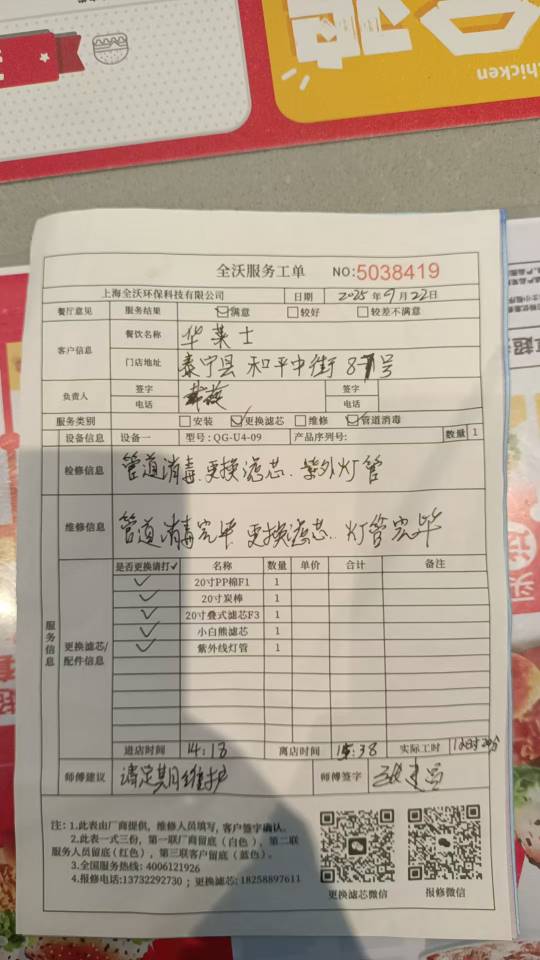 chicken
全沃服务工单 NO:5038419
上海全沃环保科技有限公司 日期 2025年9月22日
餐厅意见 服务结果 ☑满意 □较好 □较差不满意
客户信息 餐饮名称 华莱士
门店地址 泰宁县和平中街87号
负责人 签字 签字
电话 电话
服务类别 □安装 ☑更换滤芯 □维修 ☑管道消毒
设备信息 设备一 型号:QG-U4-09 产品序列号: 数量 1
检修信息 管道消毒.更换滤芯.紫外灯管
维修信息 管道消毒完毕 更换滤芯..灯管完毕
服务信息
更换滤芯/配件信息
是否更换请打✓ 名称 数量 单价 合计 备注
✓ 20寸PP棉F1 1
✓ 20寸炭棒 1
✓ 20寸叠式滤芯F3 1
✓ 小白熊滤芯 1
✓ 紫外线灯管 1
进店时间 14:18 离店时间 15:38 实际工时 1小时20分
师傅建议 请定期维护 师傅签字
注:1.此表由厂商提供,维修人员填写,客户签字确认。
2.此表一式三份,第一联厂商留底(白色),第二联
服务人员留底(红色),第三联客户留底(蓝色)。
3.全国服务热线:4006121926
4.报修电话:13732292730;更换滤芯:18258897611
更换滤芯微信 报修微信